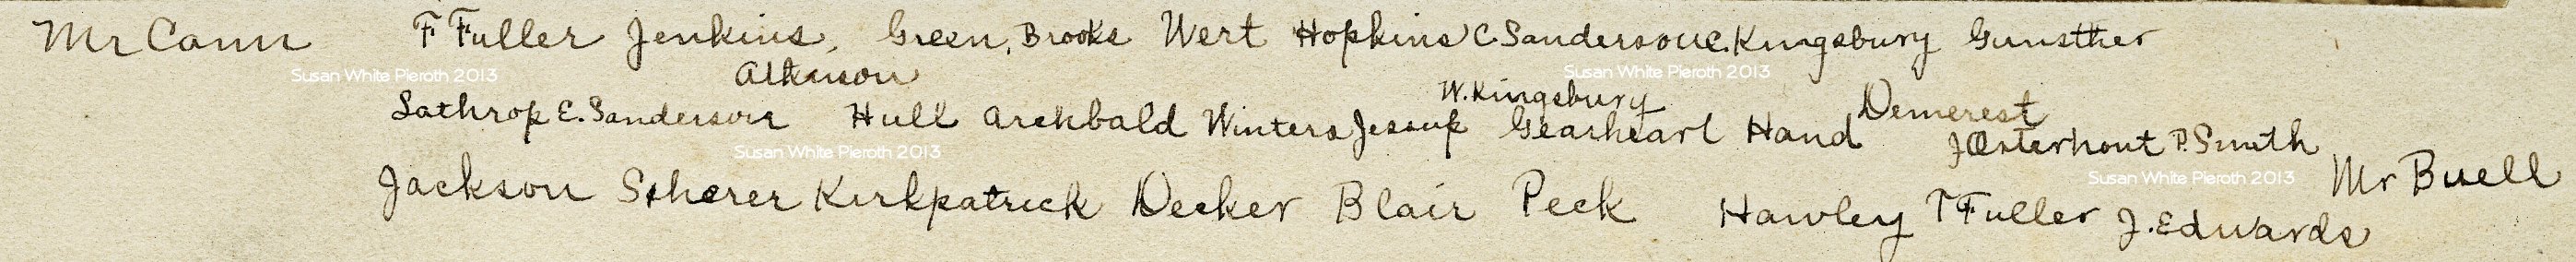 Mr Cann F Fuller Jenkins, Green, Brooks Wert Hopkins C. Sanderson C. Kingsbury Gunsther
Susan White Pieroth 2013 Atkinson Susan White Pieroth 2013
W. Kingsbury Demerest
Lathrop E. Sanderson Hull Archbald Winters Jessup Gearheart Hand J Osterhout P. Smith
Susan White Pieroth 2013 Susan White Pieroth 2013 Mr Buell
Jackson Scherer Kirkpatrick Decker Blair Peck Hawley T Fuller J. Edwards